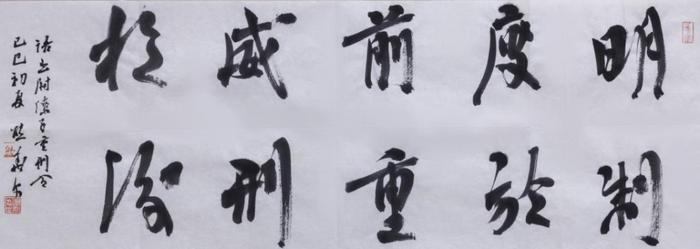 明制
度於
前重
威刑
於後
语出尉缭子重刑令
己巳初夏